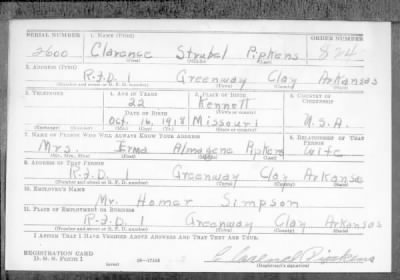 SERIAL NUMBER 1. NAME (Print) ORDER NUMBER
2600 Clarence Strubel Pipkens 824
(First) (Middle) (Last)
2. ADDRESS (Print)
R.F.D. 1 Greenway Clay Arkansas
(Number and street or R. F. D. number) (Town) (County) (State)
3. TELEPHONE 4. AGE IN YEARS 5. PLACE OF BIRTH 6. COUNTRY OF CITIZENSHIP
22 Kennett
DATE OF BIRTH (Town or county)
Oct. 16, 1918 Missouri U.S.A.
(Exchange) (Number) (Mo.) (Day) (Yr.) (State or country)
7. NAME OF PERSON WHO WILL ALWAYS KNOW YOUR ADDRESS 8. RELATIONSHIP OF THAT PERSON
Mrs. Irma Almagene Wife
(Mr., Mrs., Miss) (First) (Middle) (Last)
9. ADDRESS OF THAT PERSON
R.F.D. 1 Greenway Clay Arkansas
(Number and street or R. F. D. number) (Town) (County) (State)
10. EMPLOYER'S NAME
Mr. Homer Simpson
11. PLACE OF EMPLOYMENT OR BUSINESS
R.F.D. 1 Greenway Clay Arkansas
(Number and street or R. F. D. number) (Town) (County) (State)
I AFFIRM THAT I HAVE VERIFIED ABOVE ANSWERS AND THAT THEY ARE TRUE.
REGISTRATION CARD
D. S. S. FORM 1 (over) 16—17105 Clarence Pipkens
(Registrant's signature)